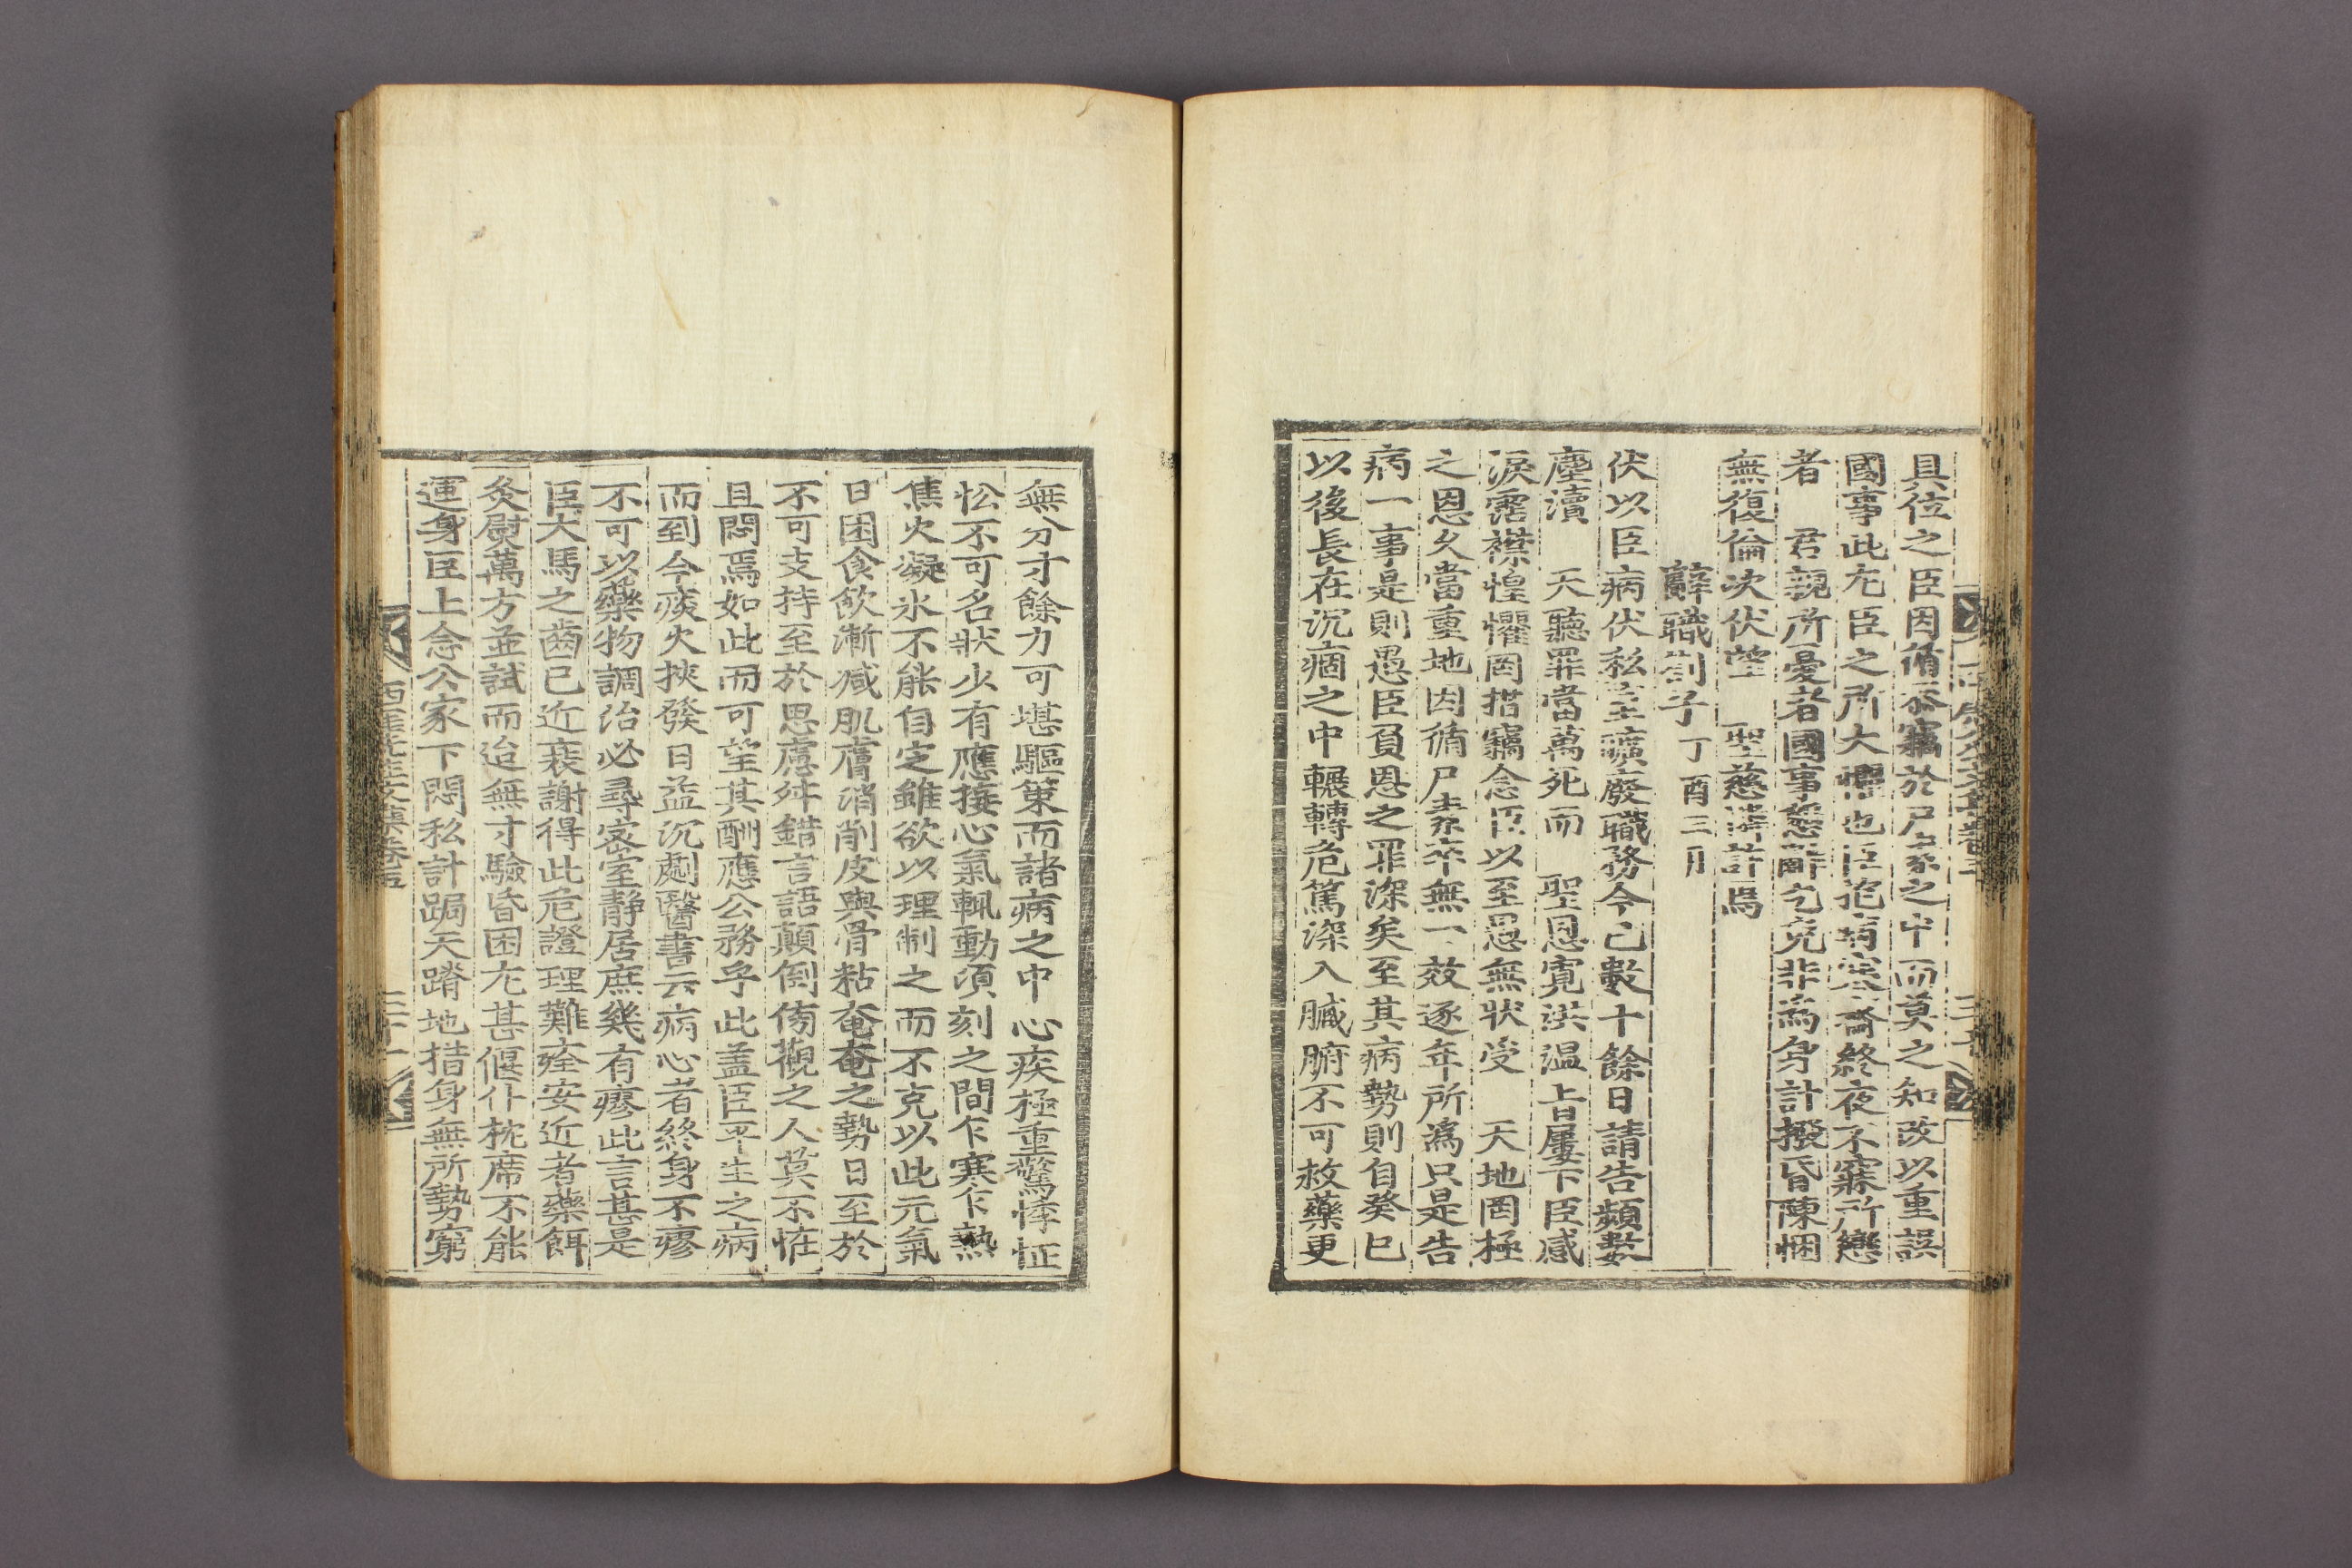 具位之臣因循忝竊於尸素之中而莫之知改以重誤
國事此尤臣之所大懼也臣抱病窮齋終夜不寐所戀
者　君親所憂者國事懇辭乞免非爲身計撥昏陳悃
無復倫次伏望　聖慈憐許焉
辭職劄子 丁酉三月
伏以臣病伏私室曠廢職務今已數十餘日請告頻數
塵瀆　天聽罪當萬死而　聖恩寬洪温旨屢下臣感
淚霑襟惶懼罔措竊念臣以至愚無狀受　天地罔極
之恩久當重地因循尸素卒無一效逐年所爲只是告
病一事是則愚臣負恩之罪深矣至其病勢則自癸巳
以後長在沉痼之中輾轉危篤深入臟腑不可救藥更
無分寸餘力可堪驅策而諸病之中心疾極重驚悸怔
忪不可名狀少有應接心氣輒動須刻之間乍寒乍熱
焦火凝氷不能自定雖欲以理制之而不克以此元氣
日困食飮漸减肌膚消削皮與骨粘奄奄之勢日至於
不可支持至於思慮舛錯言語顛倒傍觀之人莫不恠
且悶焉如此而可望其酬應公務乎此盖臣平生之病
而到今痰火挾發日益沉劇醫書云病心者終身不瘳
不可以藥物調治必尋密室靜居庶幾有瘳此言甚是
臣犬馬之齒已近衰謝得此危證理難痊安近者藥餌
灸熨萬方並試而迨無寸驗昏困尤甚偃仆枕席不能
運身臣上念公家下悶私計跼天蹐地措身無所勢窮
西厓先生文集卷五　三十一